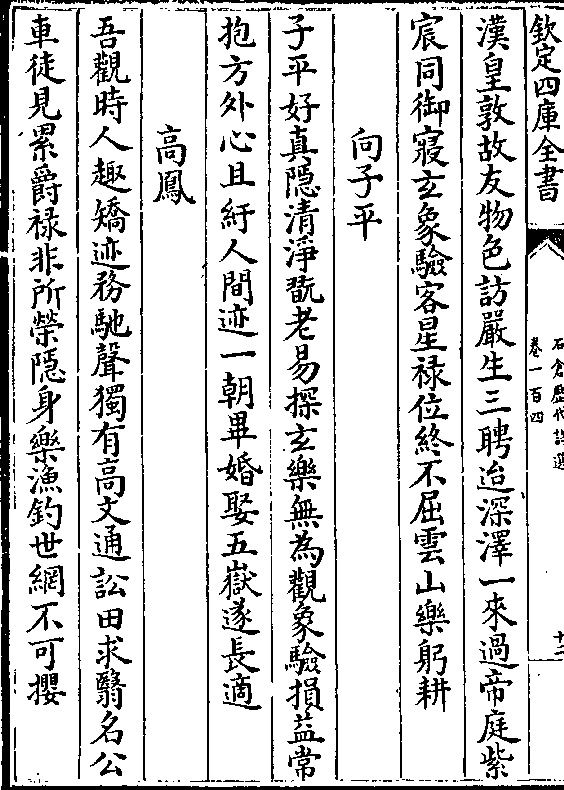 欽定四庫全書
石倉歷代詩選
卷一百四
十二
漢皇敦故友物色訪嚴生三聘迨深澤一來過帝庭紫
宸同御寢玄象驗客星祿位終不屈雲山樂躬耕
向子平
子平好真隱清淨翫老易探玄樂無為觀象驗損益常
抱方外心且紆人間迹一朝畢婚娶五嶽遂長適
高鳳
吾觀時人趣矯迹務馳聲獨有高文通訟田求翳名公
車徒見累爵祿非所榮隱身樂漁釣世網不可攖